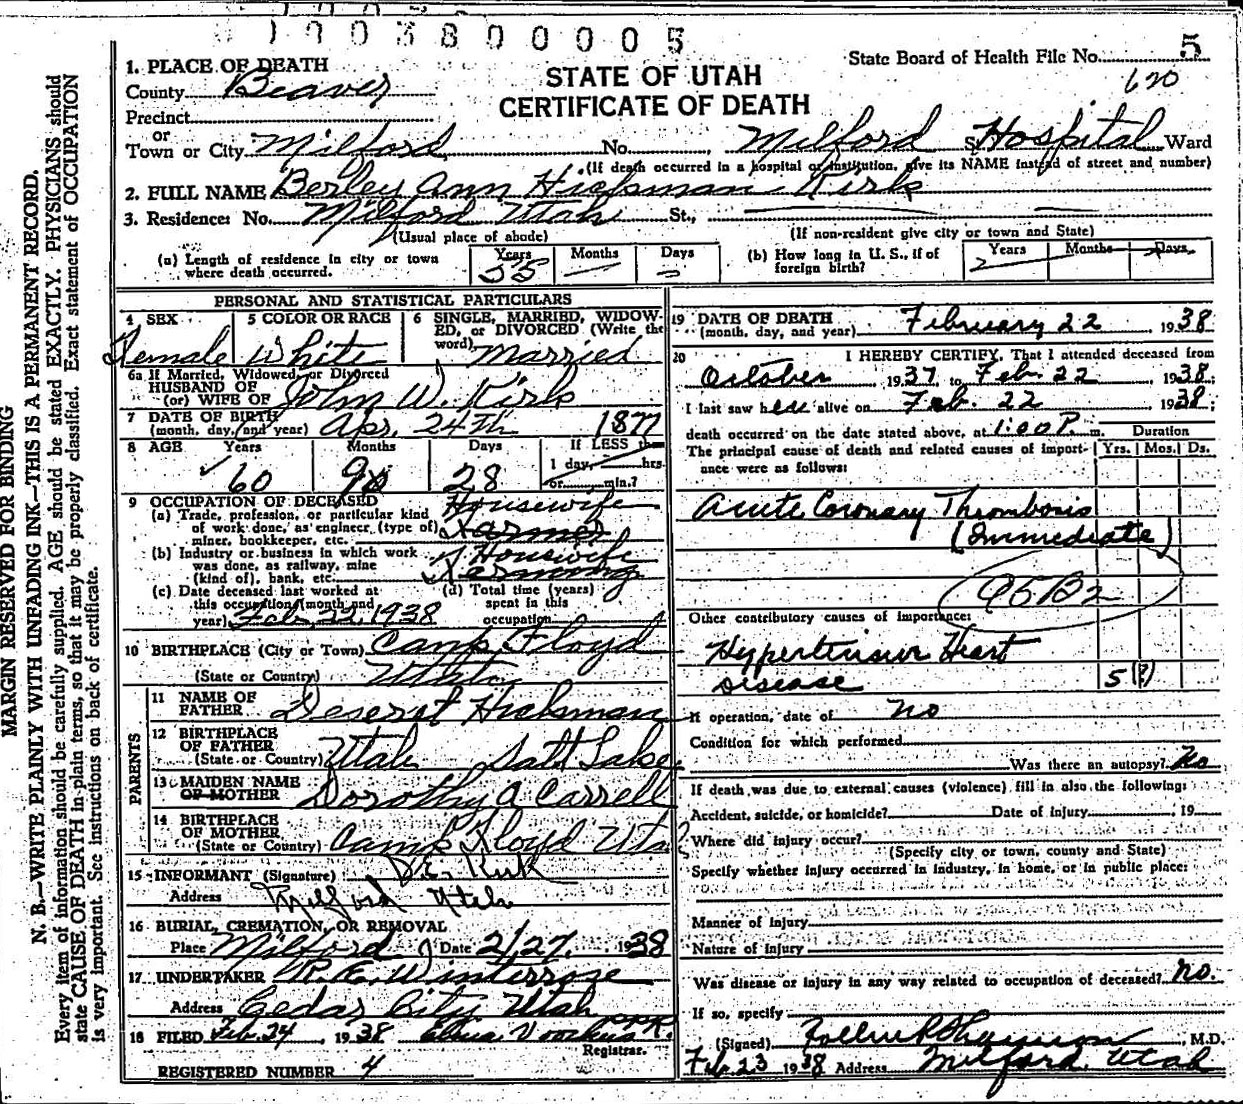 1003800005
State Board of Health File No. 5
620
STATE OF UTAH
CERTIFICATE OF DEATH
MARGIN RESERVED FOR BINDING
N. B.—WRITE PLAINLY WITH UNFADING INK—THIS IS A PERMANENT RECORD.
Every item of information should be carefully supplied. AGE should be stated EXACTLY. PHYSICIANS should
state CAUSE OF DEATH in plain terms, so that it may be properly classified. Exact statement of OCCUPATION
is very important. See instructions on back of certificate.
1. PLACE OF DEATH
County Beaver
Precinct
or
Town or City Milford No. , Milford Hospital Ward
(If death occurred in a hospital or institution, give its NAME instead of street and number)
2. FULL NAME Berley Ann Hickman Kirk
3. Residence: No. Milford Utah St.,
(Usual place of abode) (If non-resident give city or town and State)
(a) Length of residence in city or town where death occurred. Years 55 Months — Days —
(b) How long in U. S., if of foreign birth? Years Months Days
PERSONAL AND STATISTICAL PARTICULARS
4 SEX Female
5 COLOR OR RACE White
6 SINGLE, MARRIED, WIDOWED, or DIVORCED (Write the word) Married
6a If Married, Widowed, or Divorced
HUSBAND OF
(or) WIFE OF John W. Kirk
7 DATE OF BIRTH
(month, day, and year) Apr. 24th 1877
8 AGE Years 60 Months 9 Days 28 If LESS than
1 day, hrs.
or min.?
9 OCCUPATION OF DECEASED
(a) Trade, profession, or particular kind of work done, as engineer, (type of) miner, bookkeeper, etc. Housewife Farmer
(b) Industry or business in which work was done, as railway, mine (kind of), bank, etc. Housewife Farming
(c) Date deceased last worked at this occupation (month and year) Feb. 22, 1938
(d) Total time (years) spent in this occupation
10 BIRTHPLACE (City or Town) Camp Floyd
(State or Country) Utah
PARENTS
11 NAME OF FATHER Deseret Hickman
12 BIRTHPLACE OF FATHER
(State or Country) Utah Salt Lake
13 MAIDEN NAME OF MOTHER Dorothy A Carrell
14 BIRTHPLACE OF MOTHER
(State or Country) Camp Floyd Utah
15 INFORMANT (Signature) D. E. Kirk
Address Milford Utah
16 BURIAL, CREMATION, OR REMOVAL
Place Milford Date 2/27 1938
17 UNDERTAKER R. E. Winterrose
Address Cedar City, Utah
18 FILED Feb. 24, 1938
Registrar.
REGISTERED NUMBER 4
19 DATE OF DEATH
(month, day, and year) February 22 1938
20 I HEREBY CERTIFY, That I attended deceased from
October 1937 to Feb. 22 1938;
I last saw her alive on Feb. 22 1938;
death occurred on the date stated above, at 1:00 P. m.
Duration
The principal cause of death and related causes of importance were as follows: Yrs. Mos. Ds.
Acute Coronary Thrombosis
(Immediate)
Other contributory causes of importance:
Hypertensive Heart
Disease 5(?)
If operation, date of no
Condition for which performed
Was there an autopsy? No
If death was due to external causes (violence) fill in also the following:
Accident, suicide, or homicide? Date of injury , 19
Where did injury occur?
(Specify city or town, county and State)
Specify whether injury occurred in industry, in home, or in public place:
Manner of injury
Nature of injury
Was disease or injury in any way related to occupation of deceased? no.
If so, specify
(Signed) , M.D.
Feb. 23 1938 Address Milford, Utah